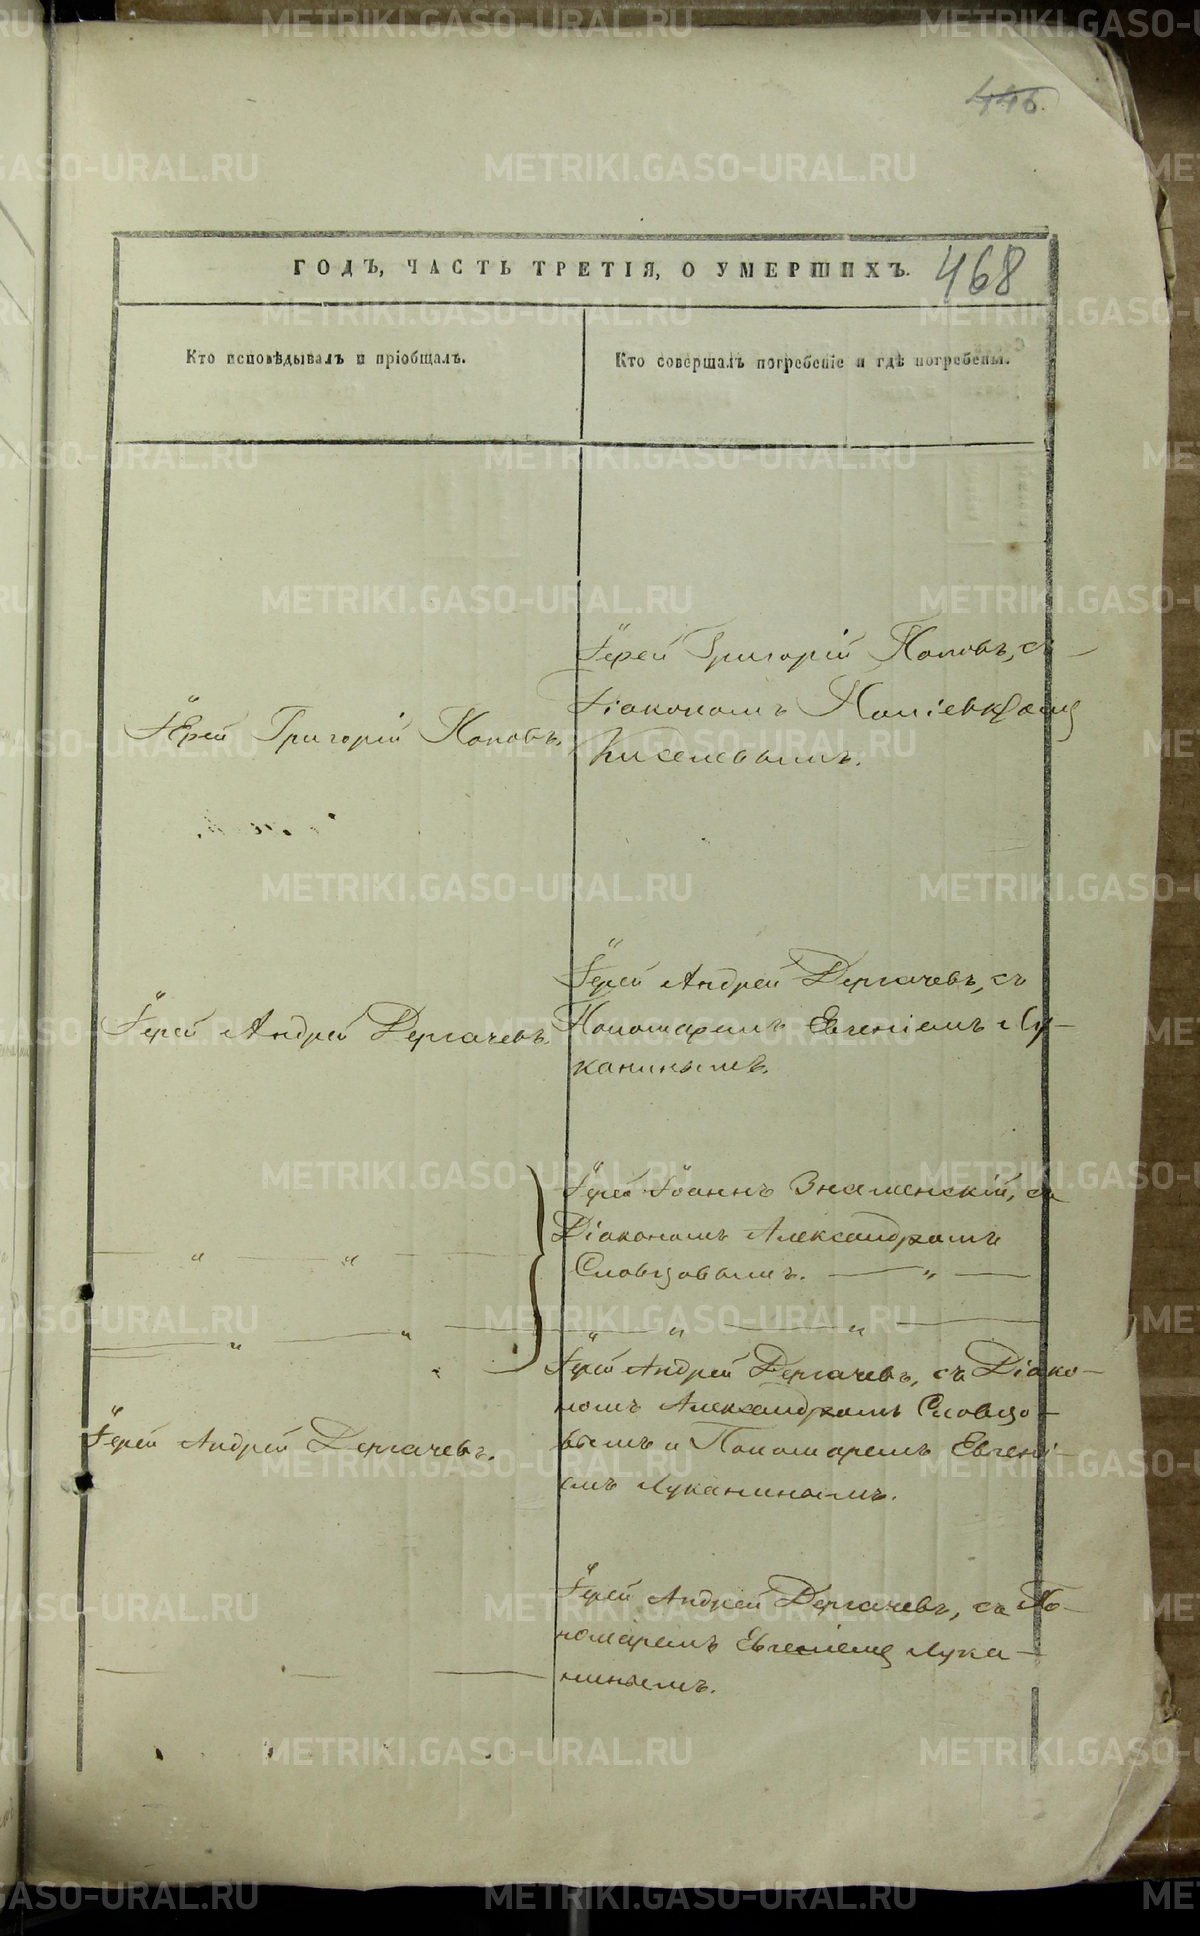 446.
ГОДЪ, ЧАСТЬ ТРЕТІЯ, О УМЕРШИХЪ.
468
Кто исповѣдывалъ и пріобщалъ.
Кто совершалъ погребеніе и гдѣ погребены.
Іерей Григорій Поповъ.
Іерей Григорій Поповъ, съ
Діакономъ
Киселевымъ.
Іерей Андрей Дергачевъ
Іерей Андрей Дергачевъ, съ
Пономаремъ Евгеніемъ Лу-
канинымъ.
Іерей Іоаннъ Знаменскій, съ
Діакономъ Александромъ
Словцовымъ. — „ —
— „ — „ —
— „ — „ —
Іерей Андрей Дергачевъ.
Іерей Андрей Дергачевъ, съ Діако-
номъ Александромъ Словцо-
вымъ и Пономаремъ Евгені-
емъ Луканинымъ.
— — —
Іерей Андрей Дергачевъ, съ По-
номаремъ Евгеніемъ Лука-
нинымъ.
METRIKI.GASO-URAL.RU